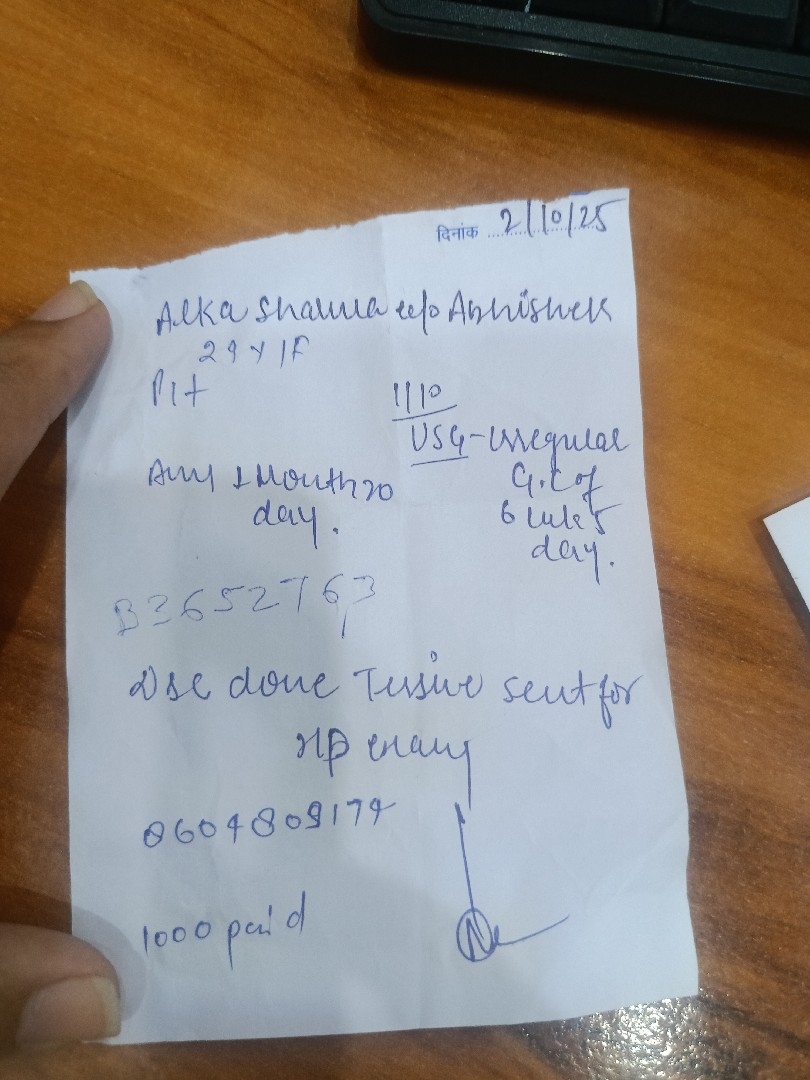 दिनांक 2/10/25
Alka Sharma w/o Abhishek
29 Y/F
P1+
1/10
USG - Irregular
G.C of
6 week 5
day.
Any 1 Month 20
day.
B3652763
D&C done Tissue sent for
HP exam
8604809174
1000 paid